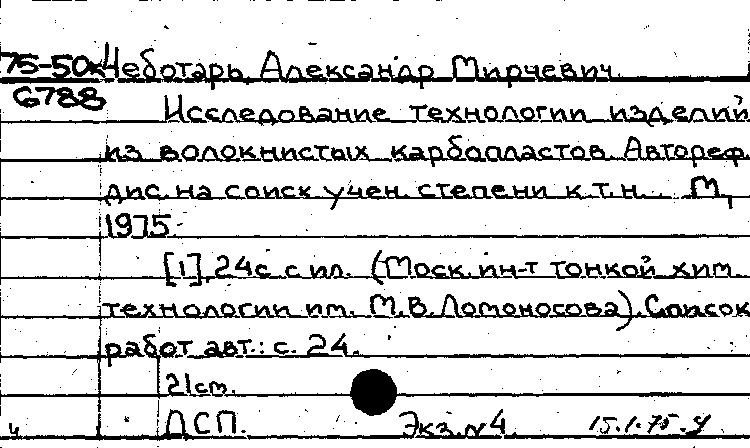 75-50к Чеботарь, Александр Мирчевич.
6788
Исследование технологии изделий
из волокнистых карбопластов. Автореф.
дис. на соиск. учен. степени к.т.н. М.,
1975.
[1], 24с. с ил. (Моск. ин-т тонкой хим.
технологии им. М.В. Ломоносова). Список
работ авт.: с. 24.
21см.
ДСП. Экз. №4.